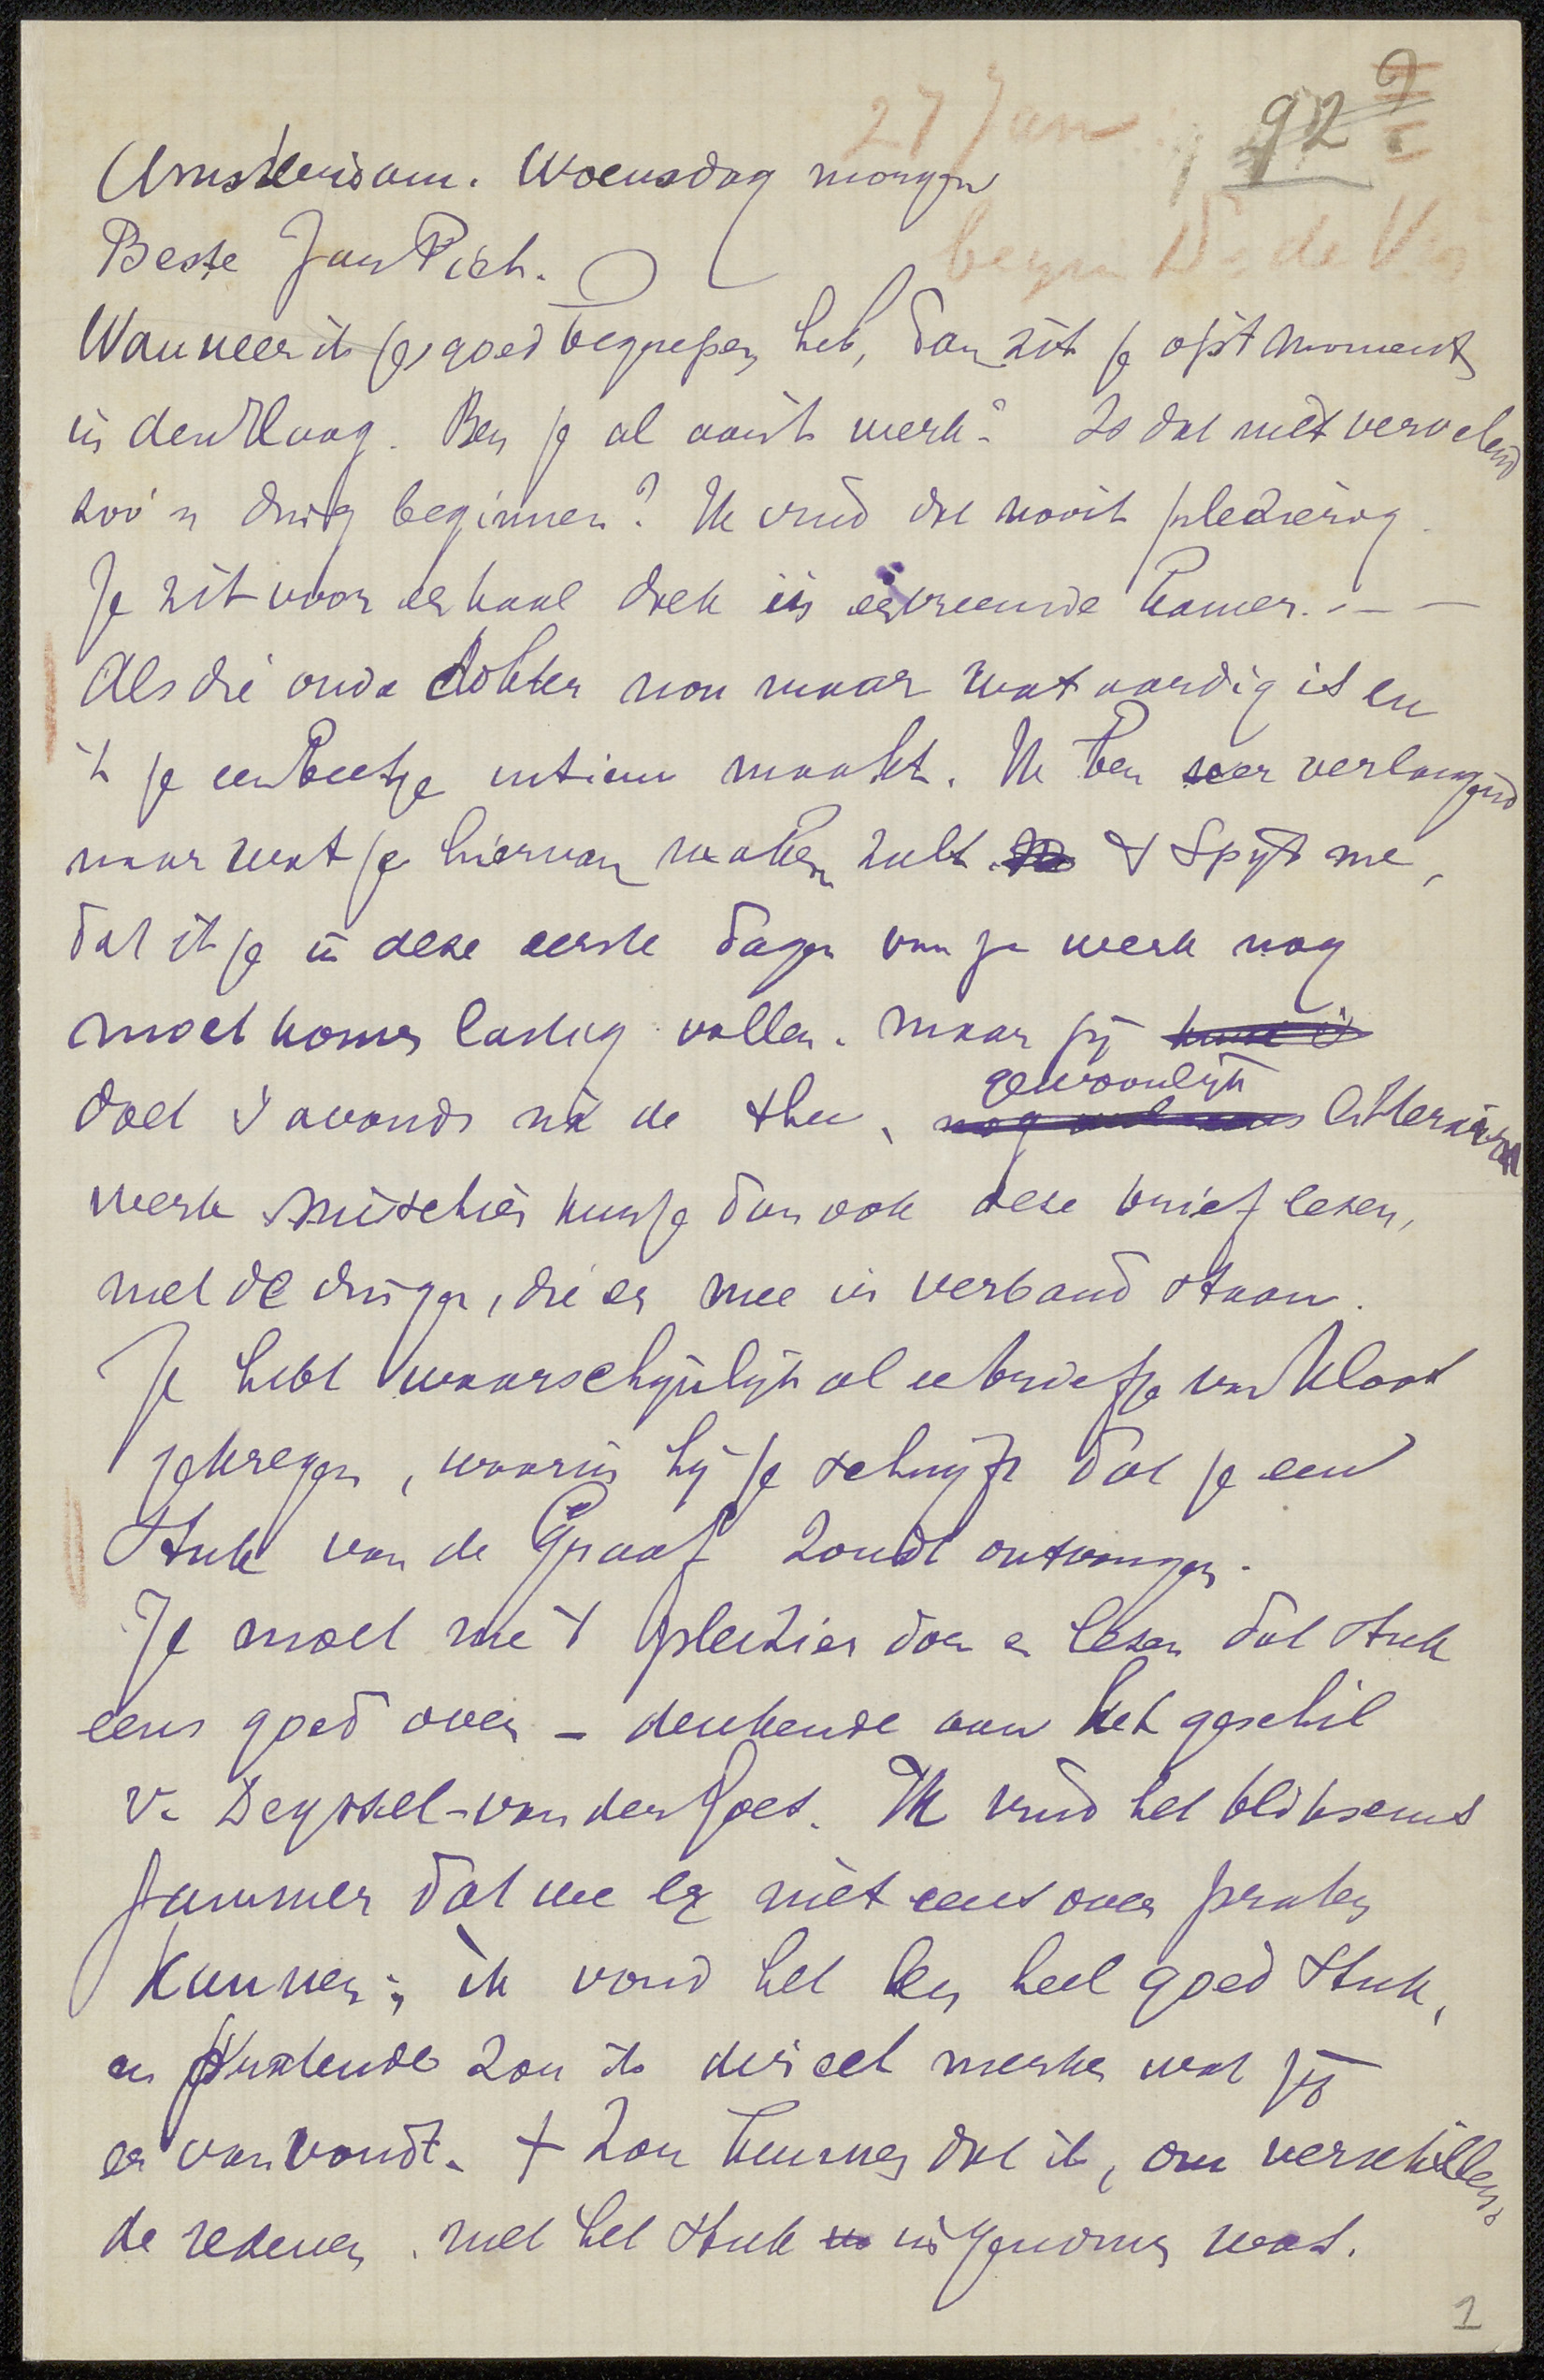 27 Jan 92 ?
Amsterdam. Woensdag morgen
begin
Beste Jan Piet.
Wanneer ik je goed begrepen heb, dan zit je op 't moment
in den Haag. Ben je al aan 't werk? Is dat niet vervelend
zoo'n ding beginnen? Ik vind dat nooit plezierig.
Je zit voor en kaal doek in een vreemde kamer. - - -
Als die oude dokter nou maar wat aardig is en
't je een beetje intiem maakt. Ik ben zeer verlangend
naar wat je hiervan maken zult. 't Spijt me,
dat ik je in deze eerste dagen van je werk nog
moet komen lastig vallen. maar jij
doet 's avonds na de thee, gewoonlijk litterair
werk misschien kun je dan ook deze brief lezen,
met de dingen, die er mee in verband staan.
Je hebt waarschijnlijk al een briefje van Kloos
gekregen, waarin hij je schrijft dat je een
stuk van de Graaf zoudt ontvangen.
Je moet me 't plezier doen en lezen dat stuk
eens goed over - denkende aan het geschil
v. Deyssel - van der Goes. Ik vind het bliksems
jammer dat we er niet eens over praten
kunnen; ik vond het een heel goed stuk,
en pratende zou ik direct merken wat jij
er van vondt. 't Zou kunnen dat ik, om verschillen
de redenen met het stuk ingenomen was.
1